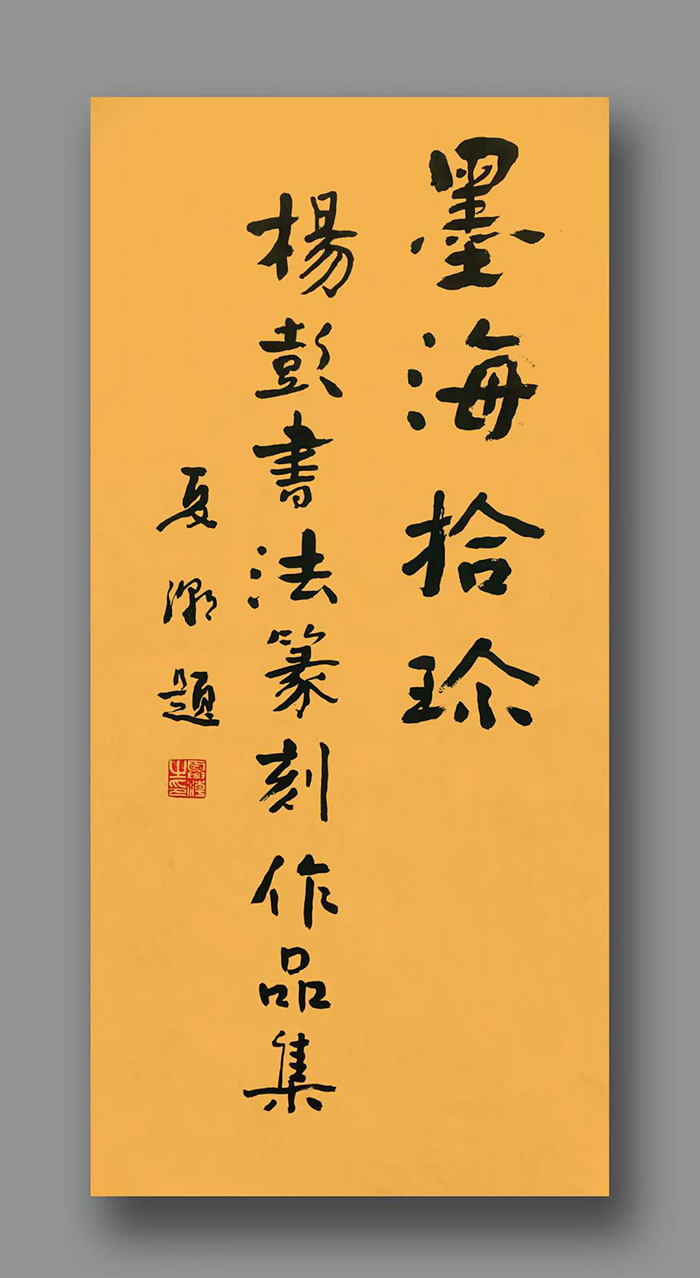 墨海拾珍
楊彭書法篆刻作品集
夏潮題